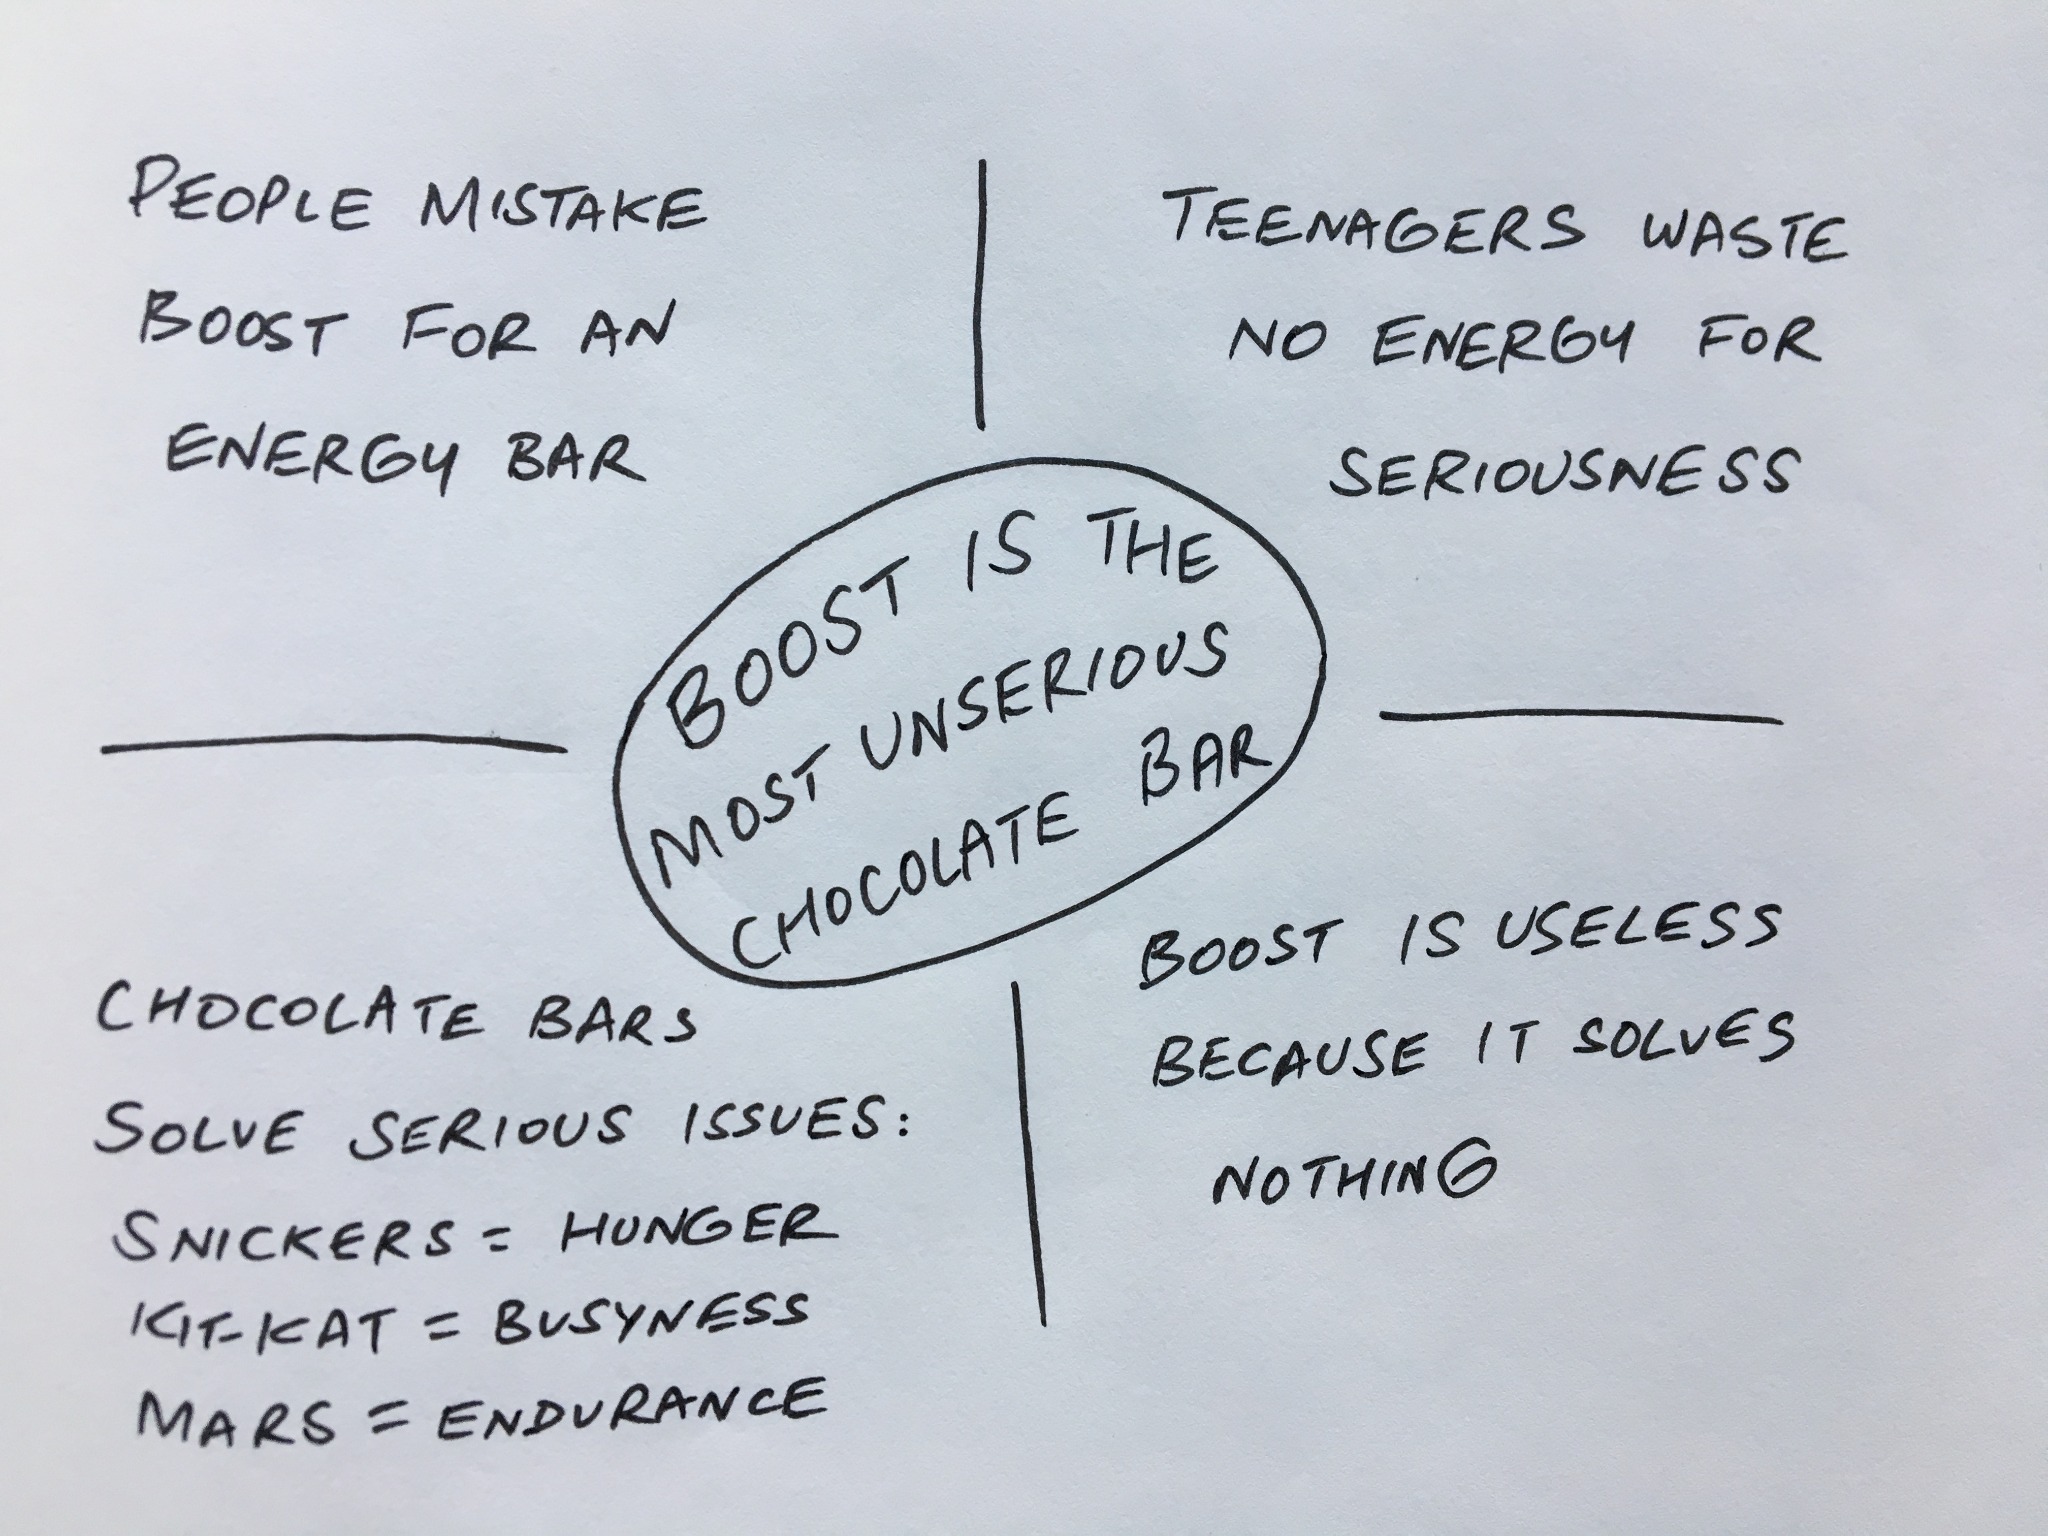 PEOPLE MISTAKE
BOOST FOR AN
ENERGY BAR
TEENAGERS WASTE
NO ENERGY FOR
SERIOUSNESS
BOOST IS THE
MOST UNSERIOUS
CHOCOLATE BAR
CHOCOLATE BARS
SOLVE SERIOUS ISSUES:
SNICKERS = HUNGER
KIT-KAT = BUSYNESS
MARS = ENDURANCE
BOOST IS USELESS
BECAUSE IT SOLVES
NOTHING